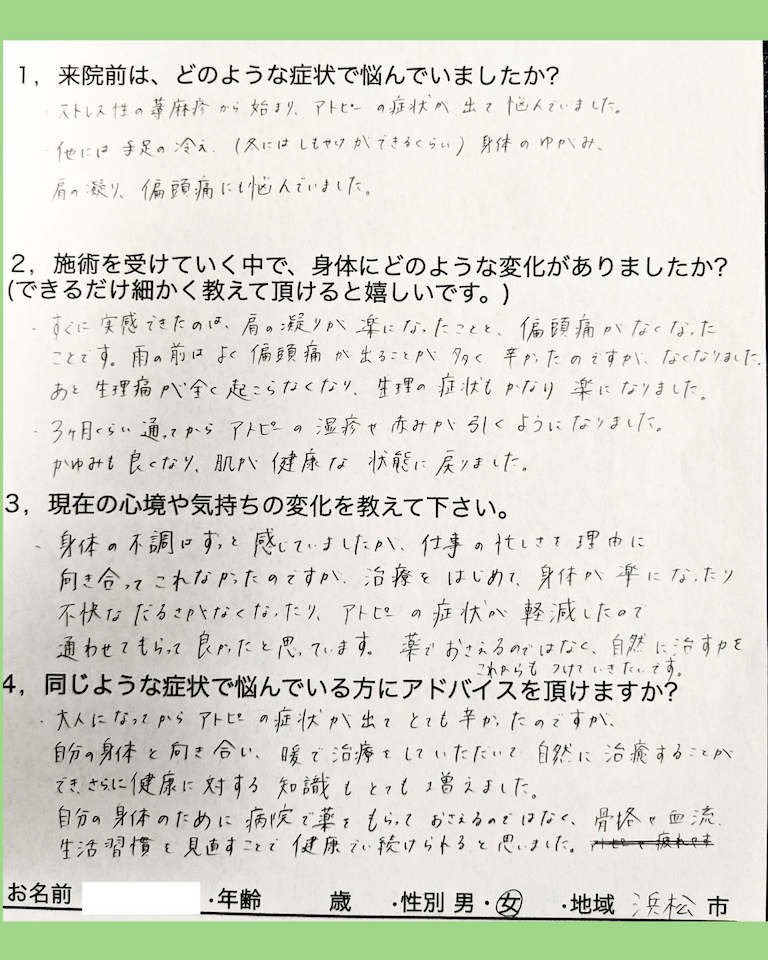 1，来院前は、どのような症状で悩んでいましたか?
・ストレス性の蕁麻疹から始まり、アトピーの症状が出て悩んでいました。
・他には手足の冷え、(冬にはしもやけができるくらい) 身体のゆがみ、
肩の凝り、偏頭痛にも悩んでいました。
2，施術を受けていく中で、身体にどのような変化がありましたか?
(できるだけ細かく教えて頂けると嬉しいです。)
・すぐに実感できたのは、肩の凝りが楽になったことと、偏頭痛がなくなった
ことです。雨の前はよく偏頭痛が出ることが多く、辛かったのですが、なくなりました。
あと生理痛が全く起こらなくなり、生理の症状もかなり楽になりました。
・3ヶ月くらい通ってからアトピーの湿疹や赤みが引くようになりました。
かゆみも良くなり、肌が健康な状態に戻りました。
3，現在の心境や気持ちの変化を教えて下さい。
・身体の不調はずっと感じていましたが、仕事の忙しさを理由に
向き合ってこれなかったのですが、治療をはじめて、身体が楽になったり
不快なだるさがなくなったり、アトピーの症状が軽減したので
通わせてもらって良かったと思っています。薬でおさえるのではなく、自然に治す力を
これからもつけていきたいです。
4，同じような症状で悩んでいる方にアドバイスを頂けますか?
・大人になってからアトピーの症状が出てとても辛かったのですが、
自分の身体と向き合い、暖で治療をしていただいて自然に治癒することが
でき、さらに健康に対する知識もとても増えました。
自分の身体のために病院で薬をもらっておさえるのではなく、骨格や血流、
生活習慣を見直すことで健康でい続けられると思いました。
お名前 ・年齢 歳 ・性別 男・女 ・地域 浜松 市